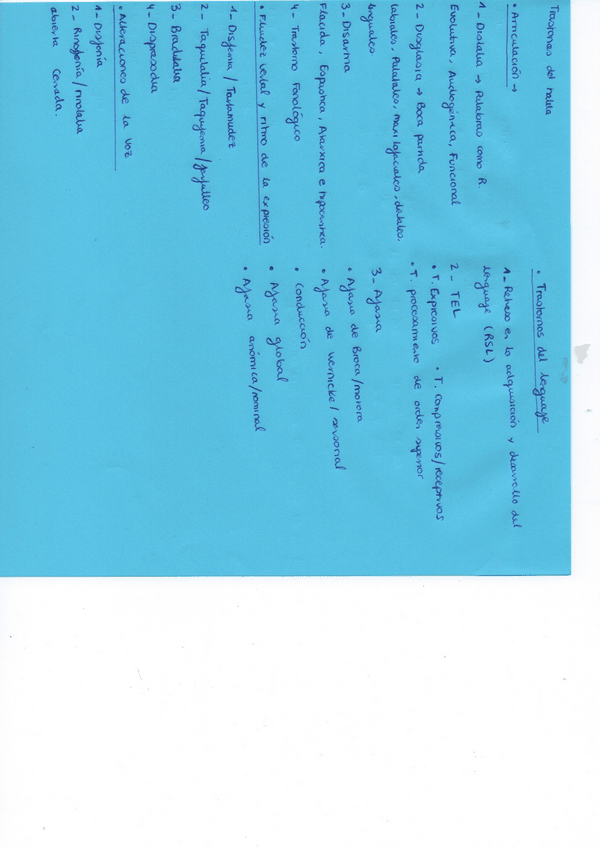 Trastornos del habla
• Articulación →
1- Dislalia → Palabras como R.
Evolutiva, Audiogénica, Funcional
2- Disglasia → Boca partida
labiales, Palatales, maxilofaciales, dentales,
linguales
3- Disartria
Flácida, Espástica, Atáxica e hipocinética.
4- Trastorno Fonológico
• Fluidez verbal y ritmo de la expresión
1- Disfemia / Tartamudez
2- Taquilalia / Taquifemia / farfulleo
3- Bradilalia
4- Disprosodia
• Alteraciones de la voz
1- Disfonía
2- Rinofonía / rinolalia
abierta Cerrada.
• Trastornos del lenguaje
1- Retraso en la adquisición y desarrollo del
lenguaje (RSL)
2- TEL
• T. Expresivos • T. Comprensivos/receptivos
• T. procesamiento de orden superior
3- Afasia
• Afasia de Broca/motora
• Afasia de Wernicke/ sensorial
• Conducción
• Afasia global
• Afasia anómica/nominal